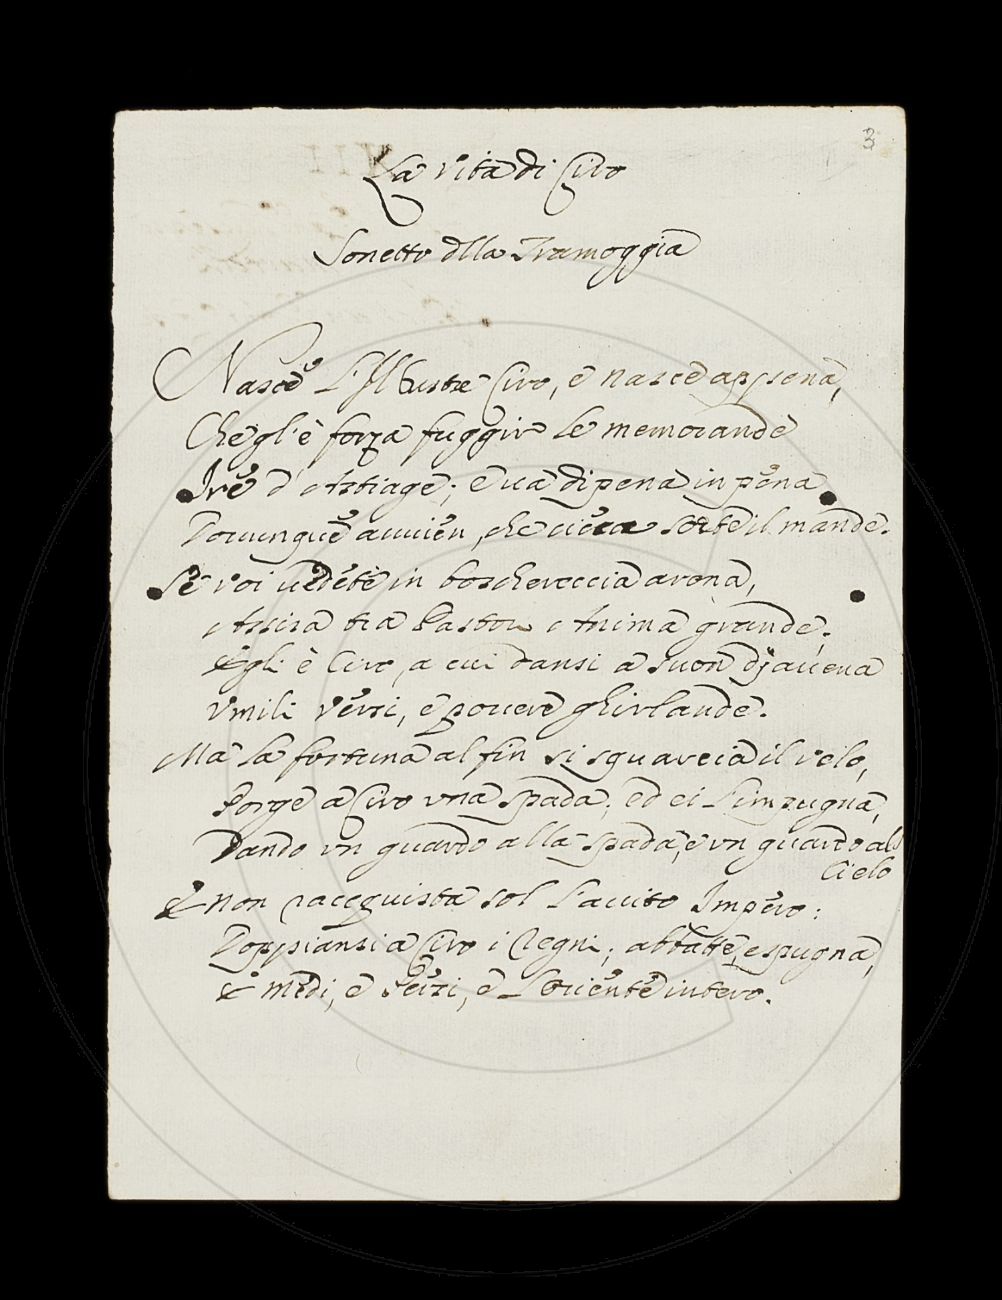 3
La vita di Ciro
Sonetto dlla Tramoggia
Nasce L'Illustre Ciro, e nasce appena,
Che gl'è forza fuggir le memorande
Ire d'Astiage; e va di pena in pena
Dovunque avvien, che cieca sorte il mande.
Se voi vedete in boschereccia arena,
Assisa tra Pastori Anima grande;
Egli è Ciro, a cui dansi a suon d'avena
Umili versi, e povere ghirlande.
Ma la fortuna al fin si squarcia il velo,
Porge a Ciro una spada; ed ei L'impugna,
Dando un guardo alla spada, e un guardo al
Cielo
E non racquista sol L'avito Impero:
Doppiansi a Ciro i Regni; abbatte, espugna,
E Medi, e Persi, e L'oriente intero.